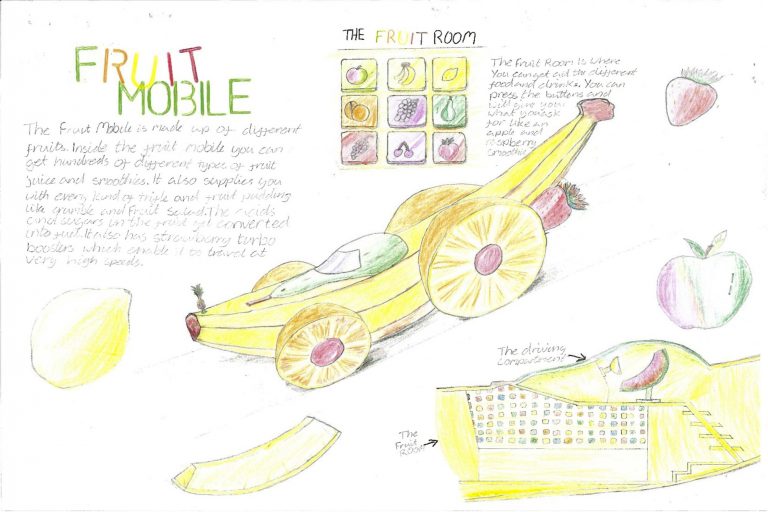 FRUIT
MOBILE
The Fruit Mobile is made up of different
fruits. Inside the fruit mobile you can
get hundreds of different types of fruit
juice and smoothies. It also supplies you
with every kind of trifle and fruit pudding
like crumble and fruit salad. The acids
and sugars in the fruit get converted
into fuel. It also has strawberry turbo
boosters which enable it to travel at
very high speeds.
THE FRUIT ROOM
The Fruit Room is where
You can get all the different
food and drinks. You can
press the buttons and
will give you
what you ask
for like an
apple and
raspberry
smoothie.
The driving
compartment
The
Fruit
Room